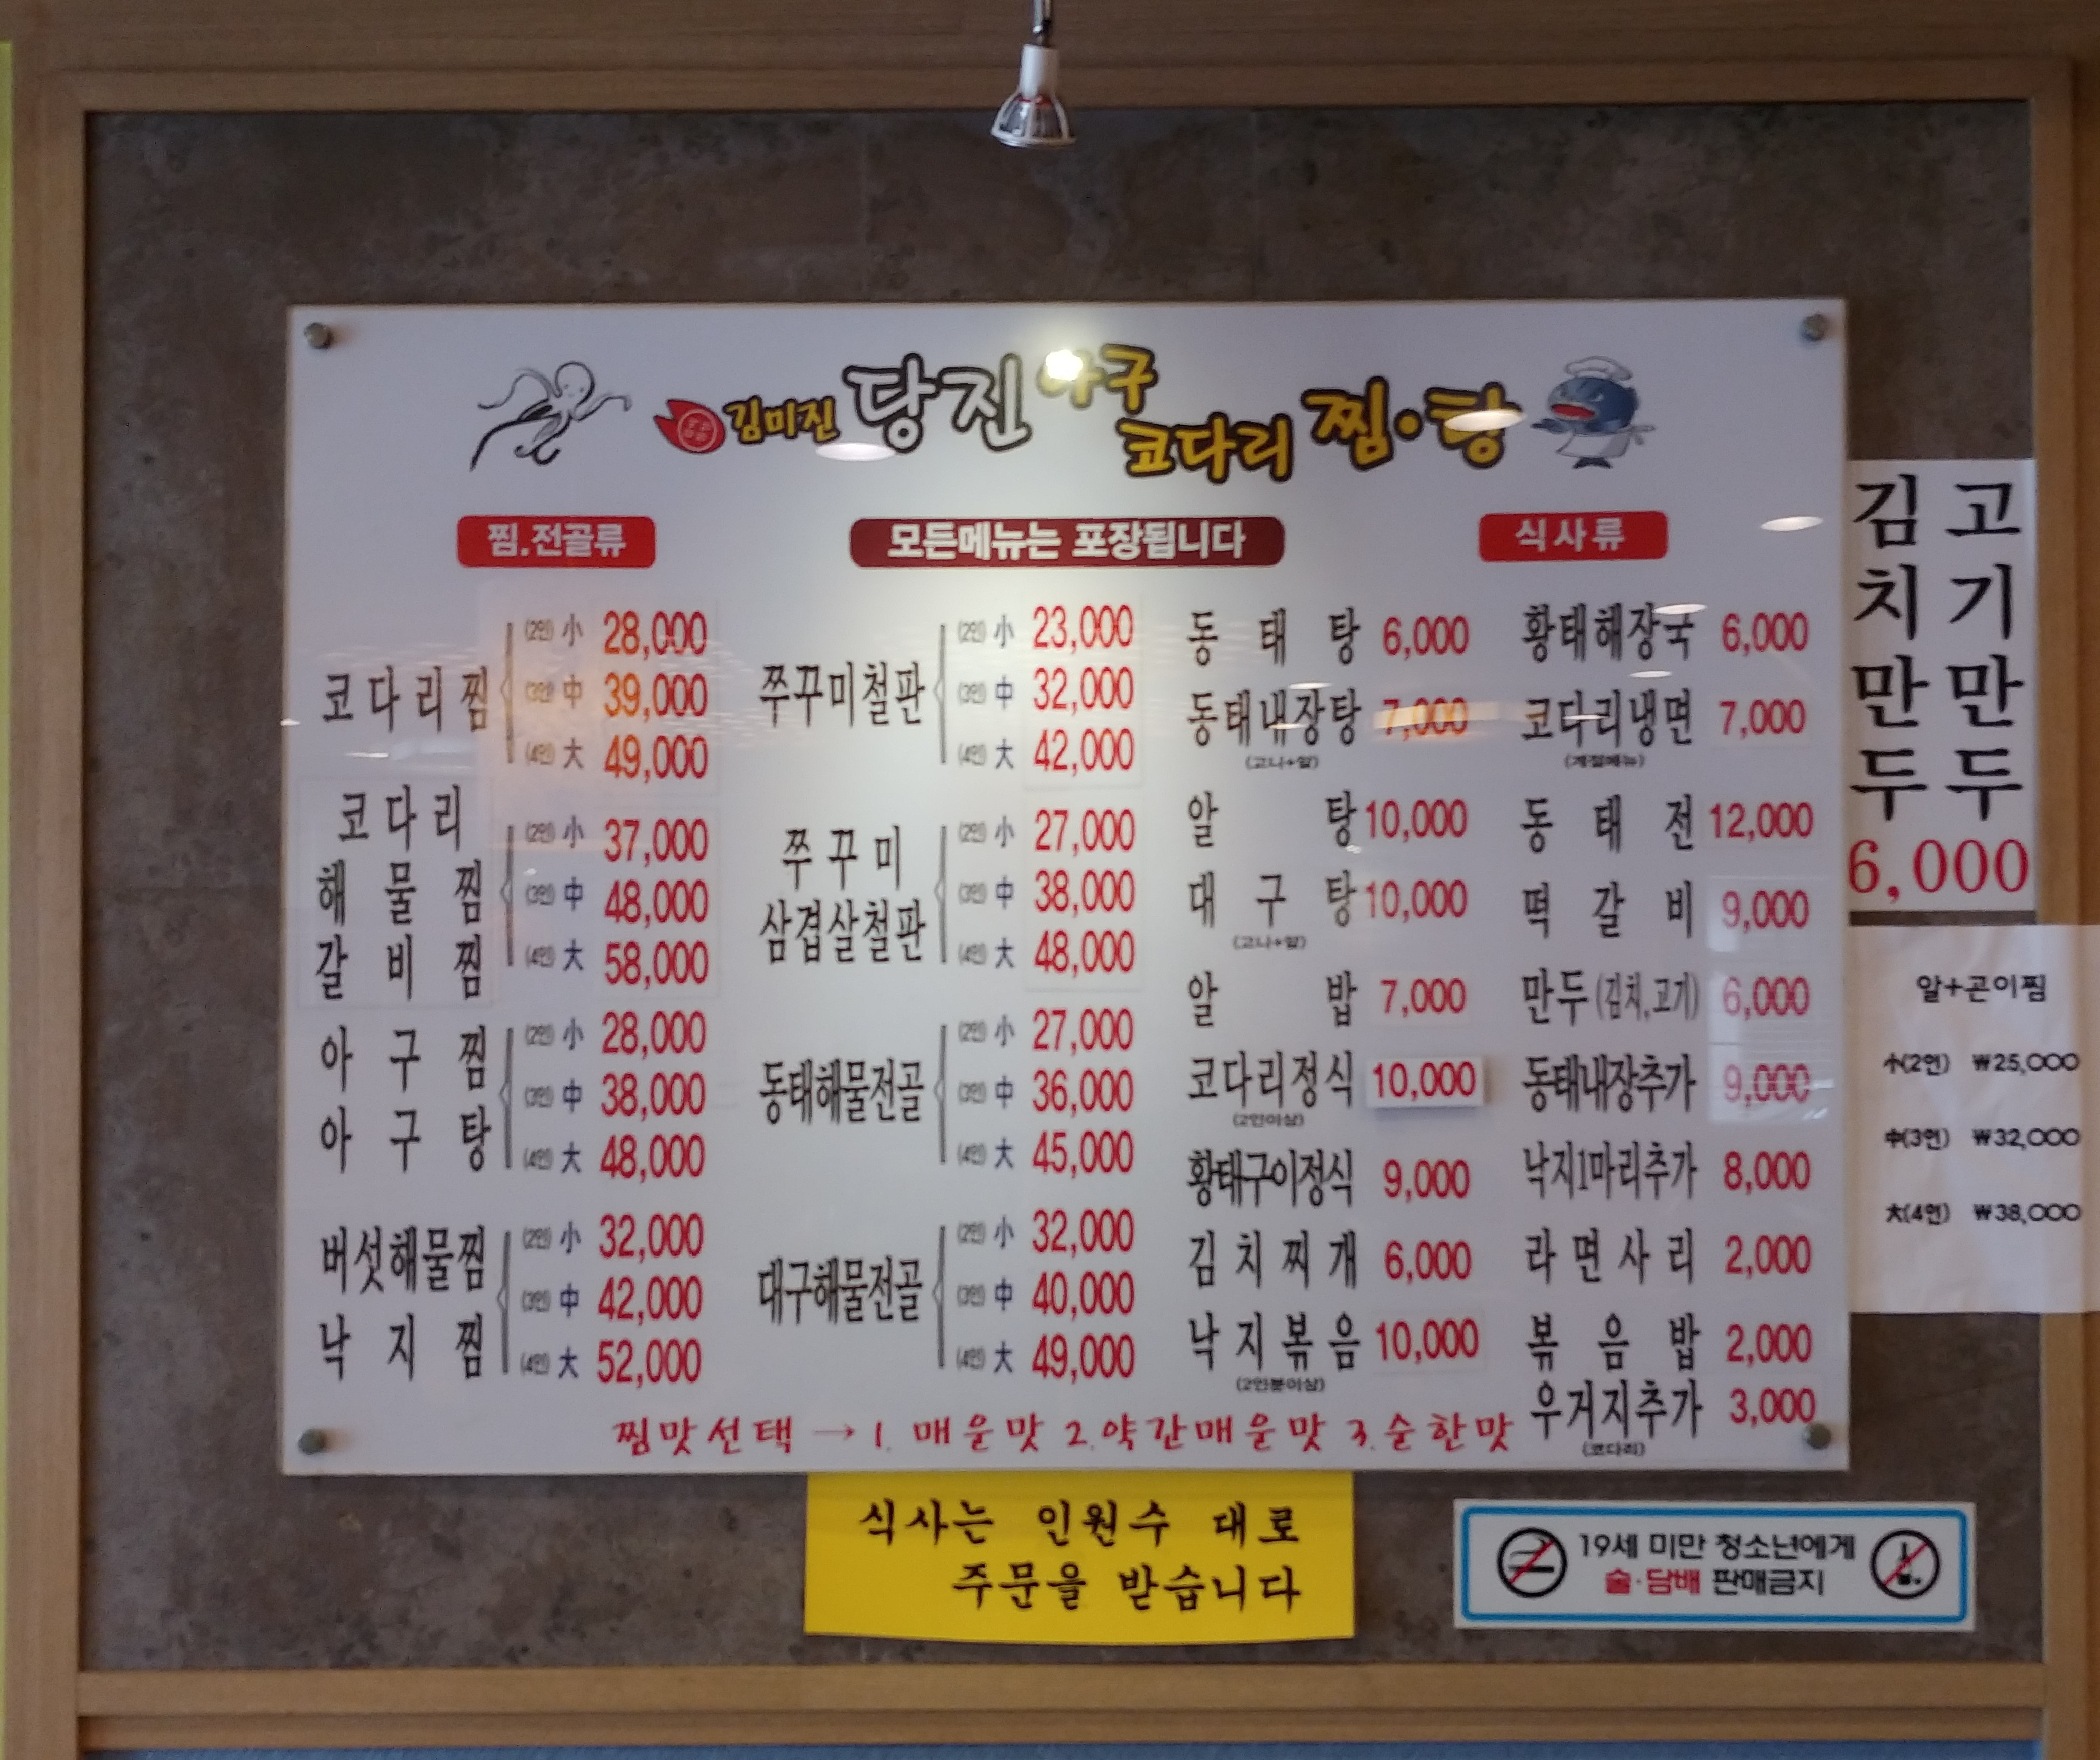 김미진 당진 아구 코다리 찜·탕
찜.전골류
모든메뉴는 포장됩니다
식사류
코다리찜
(2인) 小 28,000
(3인) 中 39,000
(4인) 大 49,000
코다리
해물찜
갈비찜
(2인) 小 37,000
(3인) 中 48,000
(4인) 大 58,000
아구찜
아구탕
(2인) 小 28,000
(3인) 中 38,000
(4인) 大 48,000
버섯해물찜
낙지찜
(2인) 小 32,000
(3인) 中 42,000
(4인) 大 52,000
쭈꾸미철판
(2인) 小 23,000
(3인) 中 32,000
(4인) 大 42,000
쭈꾸미
삼겹살철판
(2인) 小 27,000
(3인) 中 38,000
(4인) 大 48,000
동태해물전골
(2인) 小 27,000
(3인) 中 36,000
(4인) 大 45,000
대구해물전골
(2인) 小 32,000
(3인) 中 40,000
(4인) 大 49,000
동태탕 6,000
동태내장탕 7,000
(고니+알)
알탕 10,000
대구탕 10,000
(고니+알)
알밥 7,000
코다리정식 10,000
(2인이상)
황태구이정식 9,000
김치찌개 6,000
낙지볶음 10,000
(2인분이상)
황태해장국 6,000
코다리냉면 7,000
(계절메뉴)
동태전 12,000
떡갈비 9,000
만두(김치,고기) 6,000
동태내장추가 9,000
낙지1마리추가 8,000
라면사리 2,000
볶음밥 2,000
우거지추가 3,000
(코다리)
찜맛선택 → 1. 매운맛 2.약간매운맛 3.순한맛
고기만두
김치만두
6,000
알+곤이찜
小(2인) ₩25,000
中(3인) ₩32,000
大(4인) ₩38,000
식사는 인원수 대로
주문을 받습니다
19세 미만 청소년에게
술·담배 판매금지